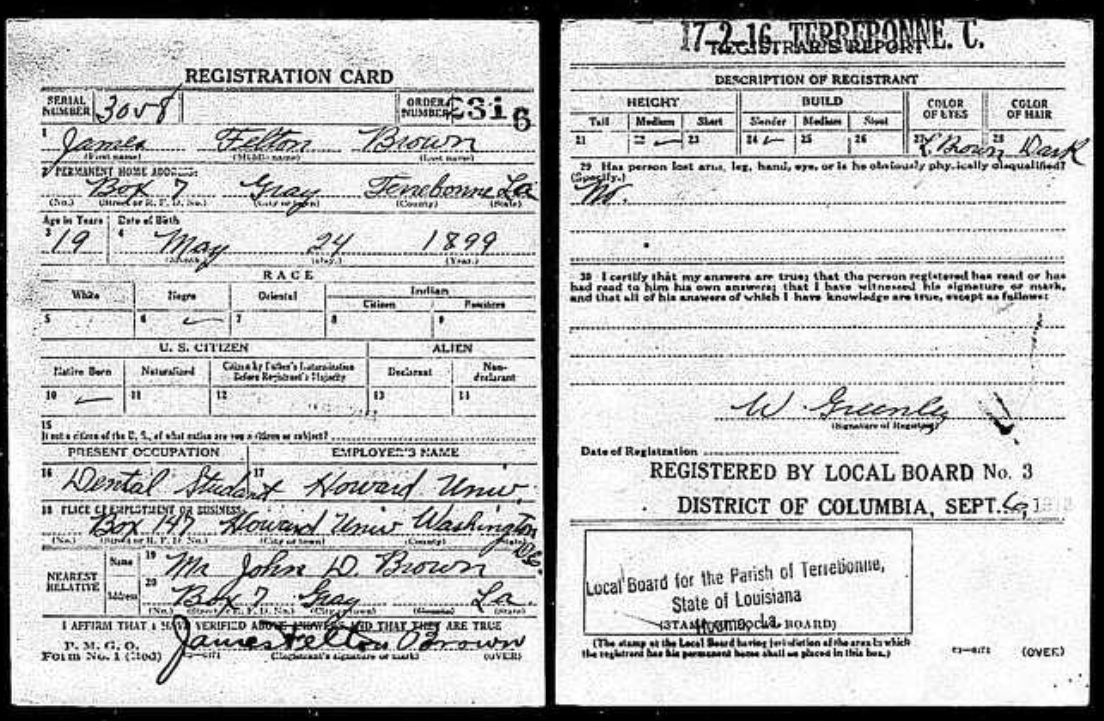 REGISTRATION CARD
SERIAL NUMBER 3058 ORDER NUMBER 2316
1 James Felton Brown
(First name) (Middle name) (Last name)
2 PERMANENT HOME ADDRESS:
Box 7 Gray Terrebonne La
(No.) (Street or R. F. D. No.) (City or town) (County) (State)
Age in Years Date of Birth
3 19 4 May 24 1899
(Month.) (Day.) (Year.)
RACE
White Negro Oriental Indian
Citizen Noncitizen
5 6 ✓ 7 8 9
U. S. CITIZEN ALIEN
Native Born Naturalized Citizen by Father's Naturalization Before Registrant's Majority Declarant Non-declarant
10 ✓ 11 12 13 14
15
If not a citizen of the U. S., of what nation are you a citizen or subject?
PRESENT OCCUPATION EMPLOYER'S NAME
16 Dental Student 17 Howard Univ.
18 PLACE OF EMPLOYMENT OR BUSINESS:
Box 147 Howard Univ Washington D.C.
(No.) (Street or R. F. D. No.) (City or town) (County) (State)
NEAREST RELATIVE
Name 19 Mr John D. Brown
Address 20 Box 7 Gray La.
(No.) (Street or R. F. D. No.) (City or town) (County) (State)
I AFFIRM THAT I HAVE VERIFIED ABOVE ANSWERS AND THAT THEY ARE TRUE
P. M. G. O.
Form No. 1 (Red) James Felton Brown
(Registrant's signature or mark) (OVER)
17-2-16 TERREBONNE. C.
REGISTRAR'S REPORT
DESCRIPTION OF REGISTRANT
HEIGHT BUILD COLOR OF EYES COLOR OF HAIR
Tall Medium Short Slender Medium Stout
21 22 ✓ 23 24 ✓ 25 26 27 L. Brown 28 Dark
29 Has person lost arm, leg, hand, eye, or is he obviously physically disqualified?
(Specify.)
No.
30 I certify that my answers are true; that the person registered has read or has
had read to him his own answers; that I have witnessed his signature or mark,
and that all of his answers of which I have knowledge are true, except as follows:
W Greenley
(Signature of Registrar)
Date of Registration
REGISTERED BY LOCAL BOARD No. 3
DISTRICT OF COLUMBIA, SEPT.
Local Board for the Parish of Terrebonne,
State of Louisiana
Houma, La.
(STAMP OF LOCAL BOARD)
(The stamp of the Local Board having jurisdiction of the area in which
the registrant has his permanent home shall be placed in this box.)
(OVER)